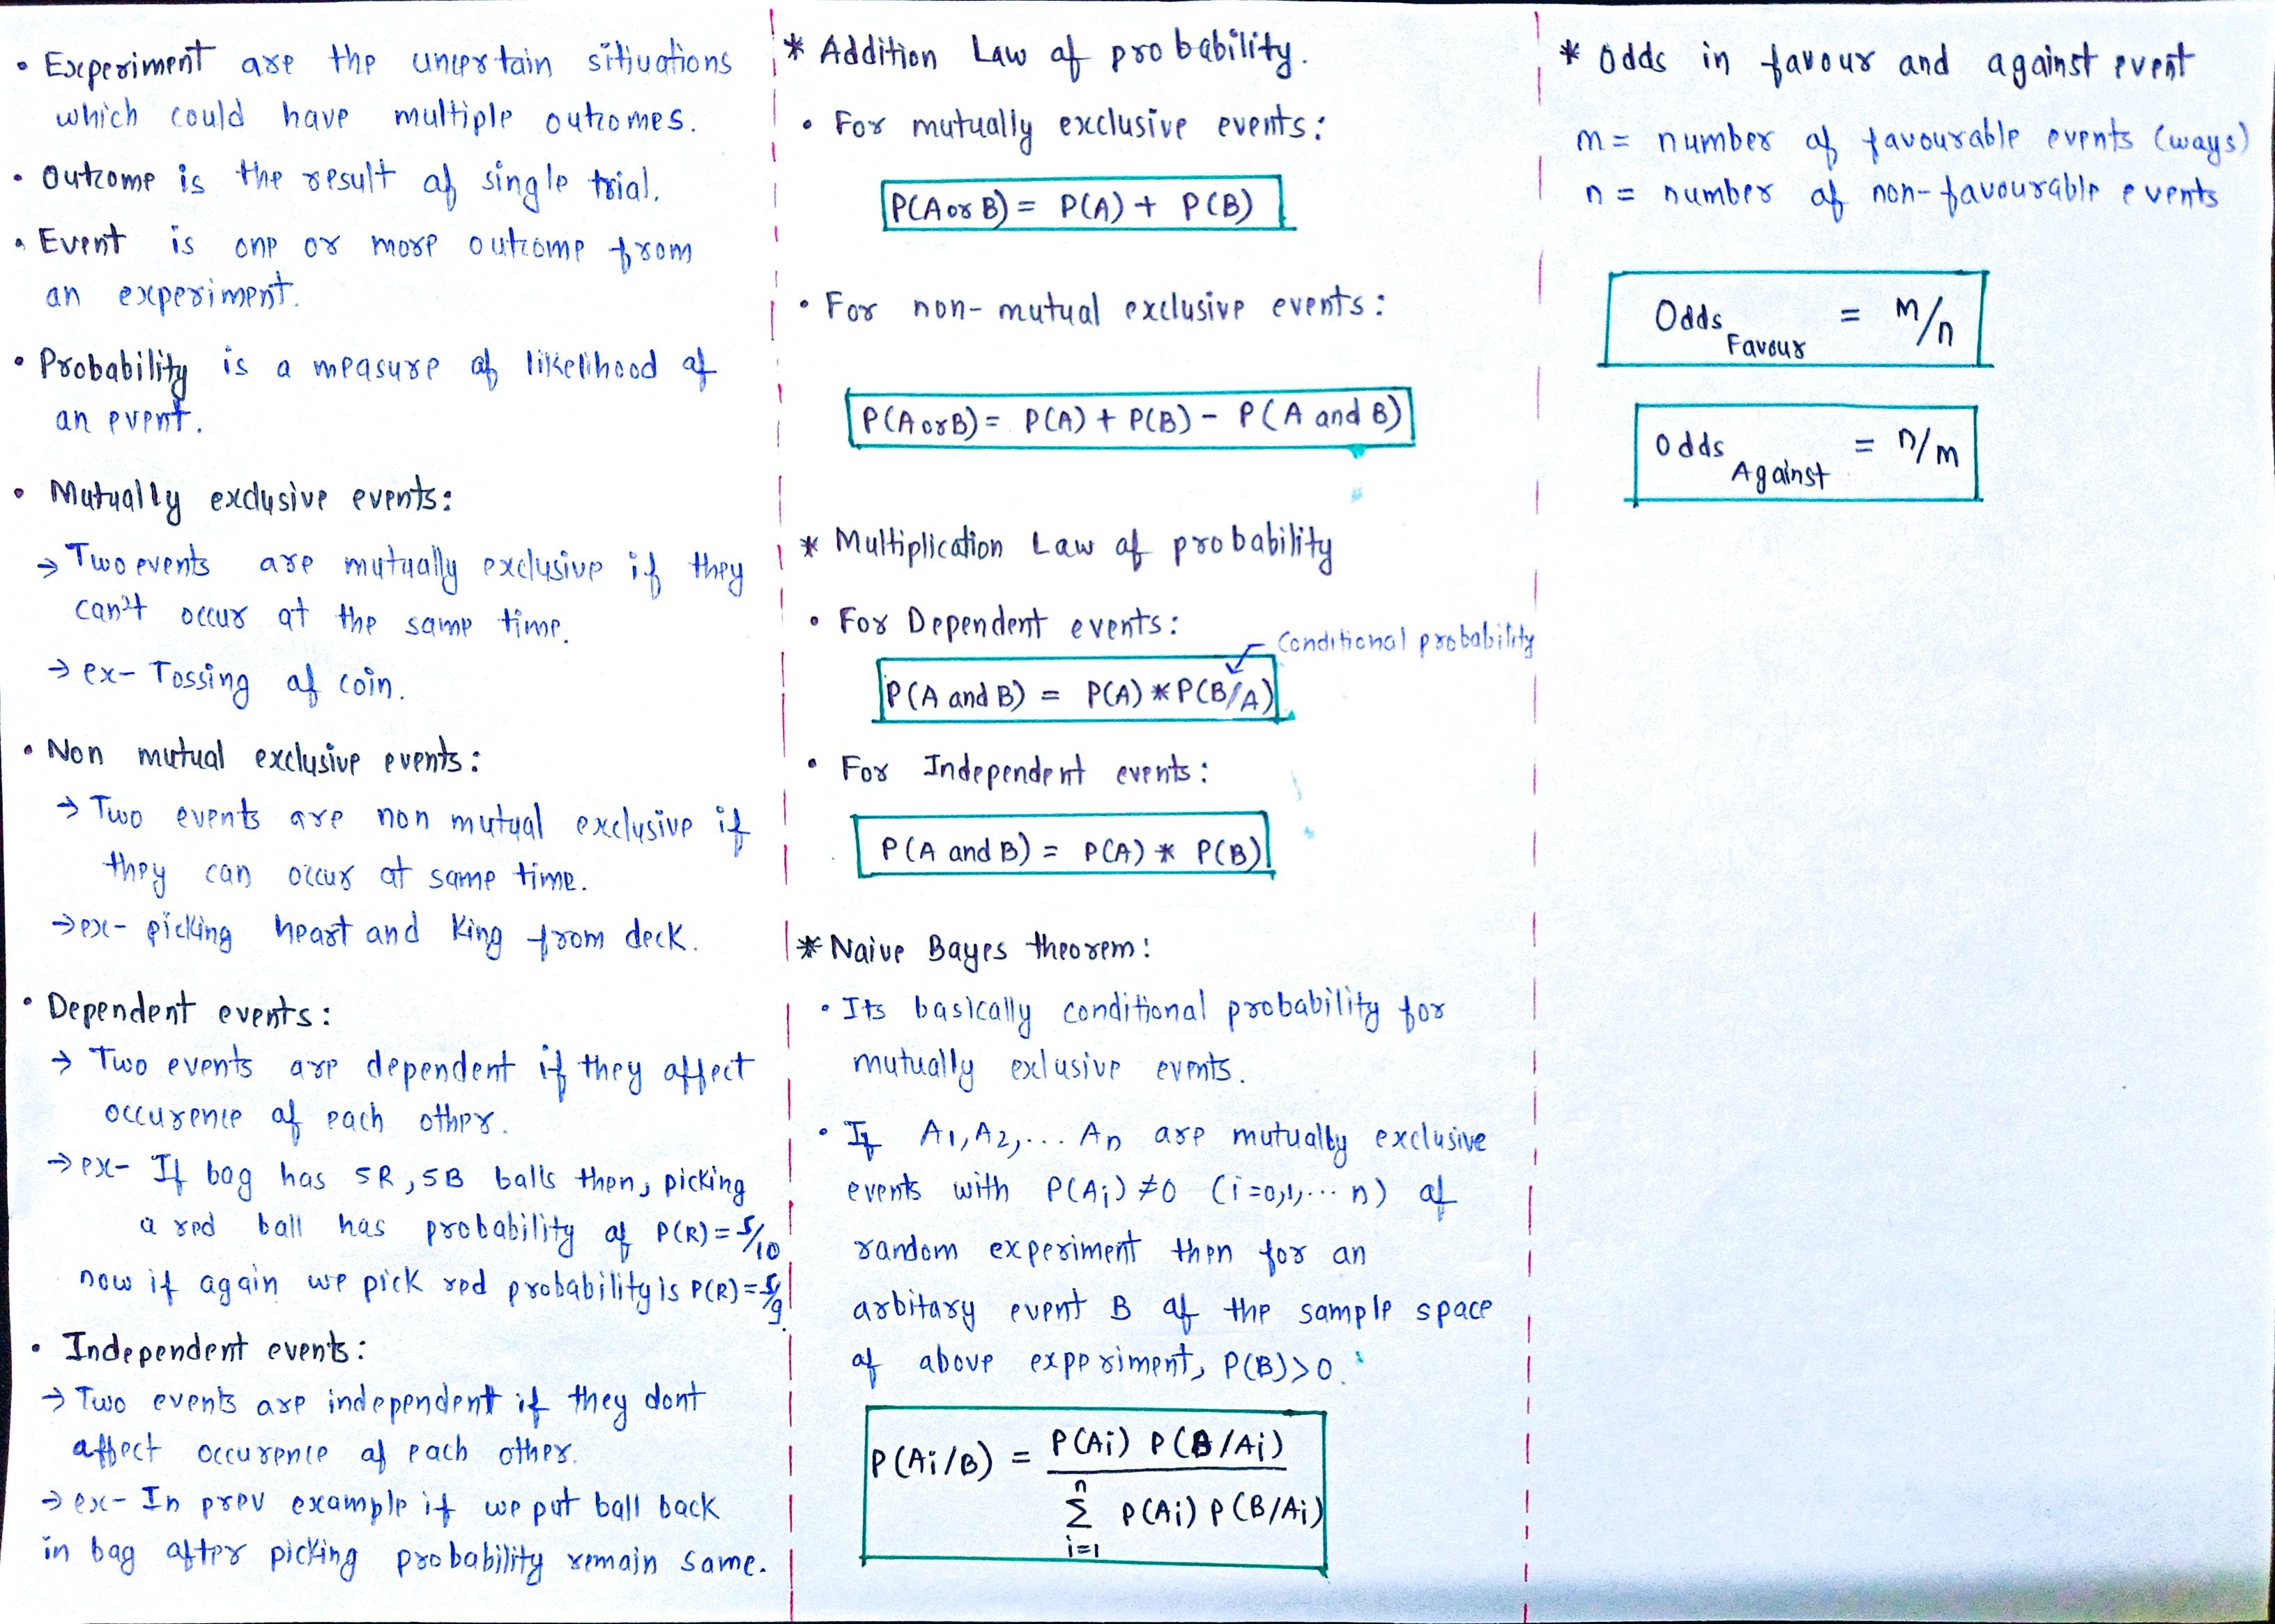 • Experiment are the uncertain sitiuations
which could have multiple outcomes.
• Outcome is the result of single trial.
• Event is one or more outcome from
an experiment.
• Probability is a measure of likelihood of
an event.
• Mutually exclusive events:
→ Two events are mutually exclusive if they
can't occur at the same time.
→ ex- Tossing of coin.
• Non mutual exclusive events:
→ Two events are non mutual exclusive if
they can occur at same time.
→ ex- picking heart and King from deck.
• Dependent events:
→ Two events are dependent if they affect
occurence of each other.
→ ex- If bag has 5R, 5B balls then, picking
a red ball has probability of P(R) = 5/10
now if again we pick red probability is P(R) = 5/9.
• Independent events:
→ Two events are independent if they dont
affect occurence of each other.
→ ex- In prev example if we put ball back
in bag after picking probability remain same.
* Addition Law of probability.
• For mutually exclusive events:
P(A or B) = P(A) + P(B)
• For non-mutual exclusive events:
P(A or B) = P(A) + P(B) - P(A and B)
* Multiplication Law of probability
• For Dependent events:
Conditional probability
P(A and B) = P(A) * P(B/A)
• For Independent events:
P(A and B) = P(A) * P(B)
* Naive Bayes theorem:
• Its basically conditional probability for
mutually exlusive events.
• If A1, A2, ... An are mutually exclusive
events with P(Ai) ≠ 0 (i=0,1,... n) of
random experiment then for an
arbitary event B of the sample space
of above experiment, P(B)>0.
P(Ai/B) = P(Ai) P(B/Ai)
n
Σ P(Ai) P(B/Ai)
i=1
* Odds in favour and against event
m = number of favourable events (ways)
n = number of non-favourable events
Odds Favour = m/n
Odds Against = n/m